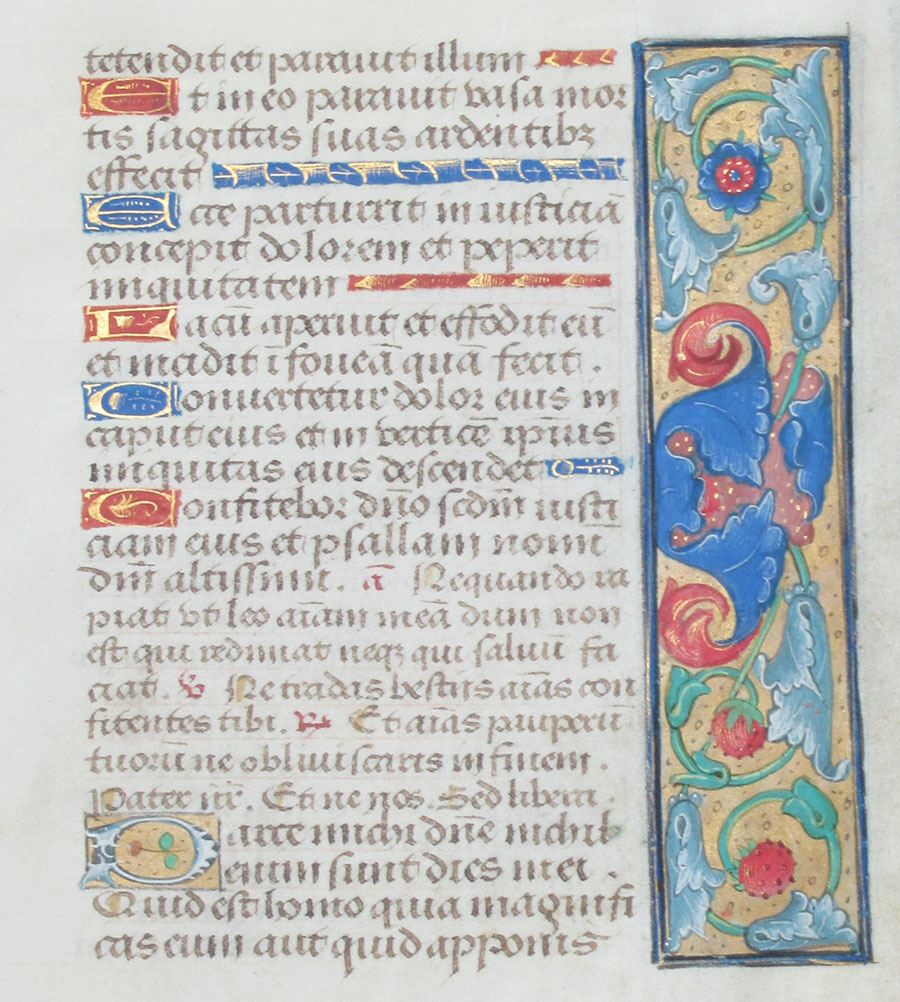 tetendit et parauit illum
Et in eo parauit vasa mor
tis sagittas suas ardentibꝫ
effecit
Ecce parturit in iusticiā
concepit dolorem et peperit
iniquitatem
Lacū aperuit et effodit eū
et incidit ī foueā quā fecit.
Conuertetur dolor eius in
caput eius et in verticē ipius
iniquitas eius descendet
Confitebor dn̄o scdm̄ iusti
ciam eius et psallam nomī
dnī altissimi. a Nequando ra
piat vt leo aīam meā dum non
est qui redimat neqꝫ qui saluū fa
ciat. ℣ Ne tradas bestiis aīas con
fitentes tibi. ℟ Et aīas pauperū
tuorū ne obliuiscaris in finem.
Pater nr̄. Et ne nos. Sed libera.
Parce michi dn̄e nichil
enim sunt dies mei.
Quid est homo quia magnifi
cas eum aut quid apponis